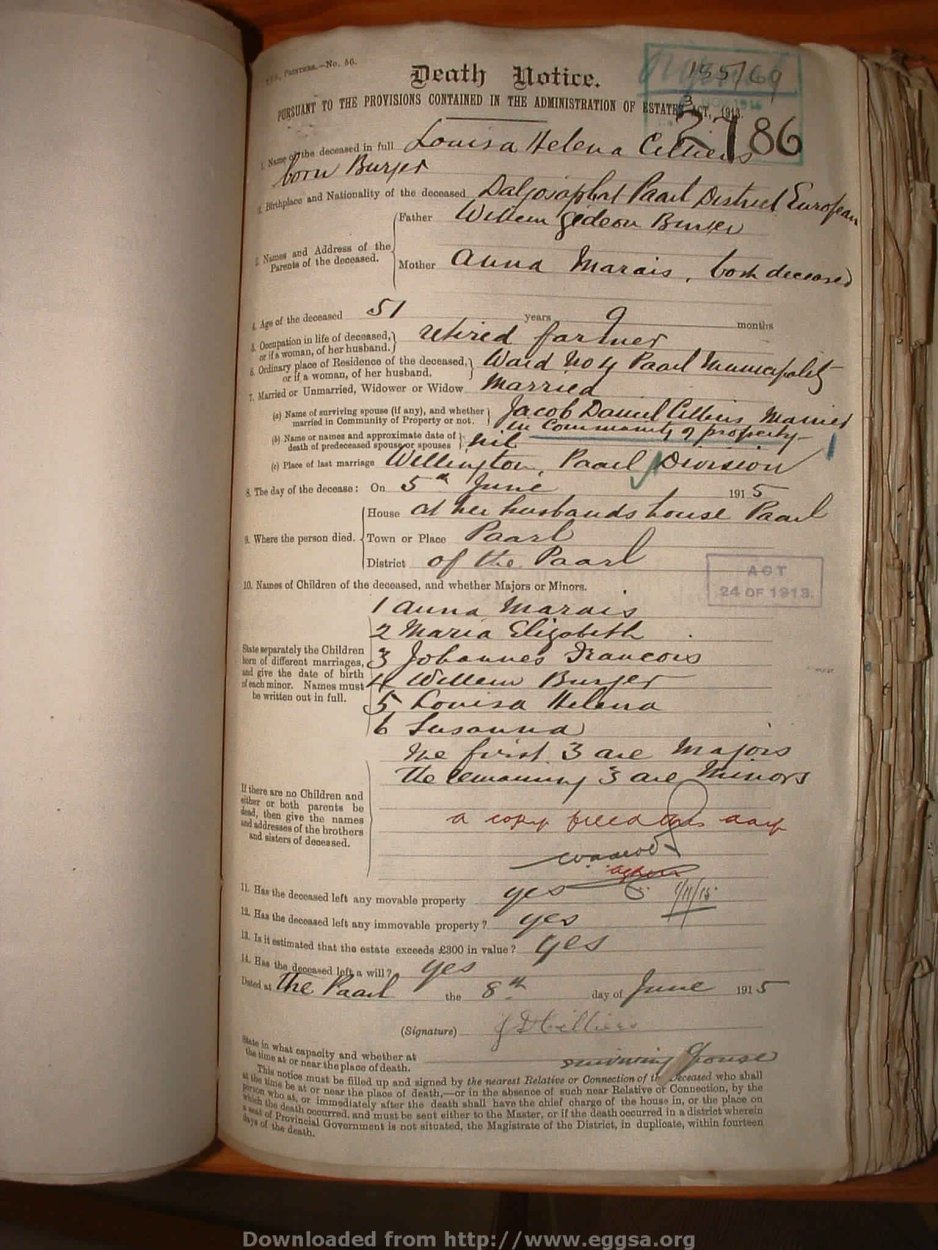 PRINTERS.—No. 56.
Death Notice.
155/69
PURSUANT TO THE PROVISIONS CONTAINED IN THE ADMINISTRATION OF ESTATES ACT, 1913.
2786
1. Name of the deceased in full Louisa Helena Cilliers
born Burger
2. Birthplace and Nationality of the deceased Daljosaphat Paarl District European
3. Names and Address of the Parents of the deceased.
Father Willem Gedeon Burger
Mother Anna Marais, both deceased
4. Age of the deceased 51 years 9 months
5. Occupation in life of deceased, or if a woman, of her husband. retired farmer
6. Ordinary place of Residence of the deceased, or if a woman, of her husband. Ward No 4 Paarl Municipality
7. Married or Unmarried, Widower or Widow Married
(a) Name of surviving spouse (if any), and whether married in Community of Property or not. Jacob Daniel Cilliers Married
in Community of property
(b) Name or names and approximate date of death of predeceased spouse or spouses nil
(c) Place of last marriage Wellington, Paarl Division
8. The day of the decease: On 5th June 1915
9. Where the person died.
House at her husbands house Paarl
Town or Place Paarl
District of the Paarl
ACT
24 OF 1913.
10. Names of Children of the deceased, and whether Majors or Minors.
State separately the Children born of different marriages, and give the date of birth of each minor. Names must be written out in full.
1 Anna Marais
2 Maria Elizabeth
3 Johannes Francois
4 Willem Burger
5 Louisa Helena
6 Susanna
The first 3 are Majors
the remaining 3 are Minors
If there are no Children and either or both parents be dead, then give the names and addresses of the brothers and sisters of deceased.
a copy filed this day
11. Has the deceased left any movable property yes
12. Has the deceased left any immovable property? yes
13. Is it estimated that the estate exceeds £300 in value? yes
14. Has the deceased left a will? yes
Dated at the Paarl the 8th day of June 1915
(Signature) J D Cilliers
State in what capacity and whether at the time at or near the place of death. surviving spouse
This notice must be filled up and signed by the nearest Relative or Connection of the deceased who shall
at the time be at or near the place of death,—or in the absence of such near Relative or Connection, by the
person who at, or immediately after the death shall have the chief charge of the house in, or the place on
which the death occurred, and must be sent either to the Master, or if the death occurred in a district wherein
a seat of Provincial Government is not situated, the Magistrate of the District, in duplicate, within fourteen
days of the death.
Downloaded from http://www.eggsa.org